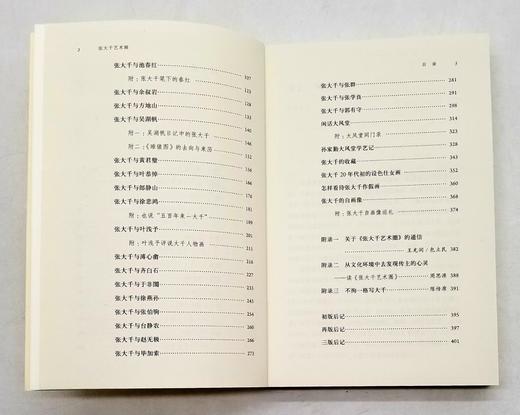 2 张大千艺术圈
张大千与池春红
附：张大千笔下的春红 127
张大千与余叔岩 131
张大千与方地山
张大千与吴湖帆
附一：吴湖帆日记中的张大千
附二：《睡猿图》的去向与来历
张大千与黄君璧
张大千与叶恭绰
张大千与郎静山
张大千与徐悲鸿
附：也说“五百年来一大千”
张大千与叶浅予
附：叶浅予评说大千人物画
张大千与溥心畬
张大千与齐白石
张大千与于非闇
张大千与徐燕孙
张大千与张伯驹
张大千与台静农
张大千与赵无极
张大千与毕加索 273
目录 3
张大千与张群 281
张大千与张学良 291
张大千与郭有守 288
闲话大风堂 314
附：大风堂同门录 338
孙家勤大风堂学艺记
张大千的收藏
张大千20年代初的设色仕女画 352
怎样看待张大千作假画 361
张大千的自画像 368
附：张大千自画像巡礼 374
附录一 关于《张大千艺术圈》的通信
王光润 / 包立民 382
附录二 从文化环境中去发现传主的心灵
——读《张大千艺术圈》 周思源 388
附录三 不拘一格写大千 陈传席 391
初版后记 395
再版后记 397
三版后记 401